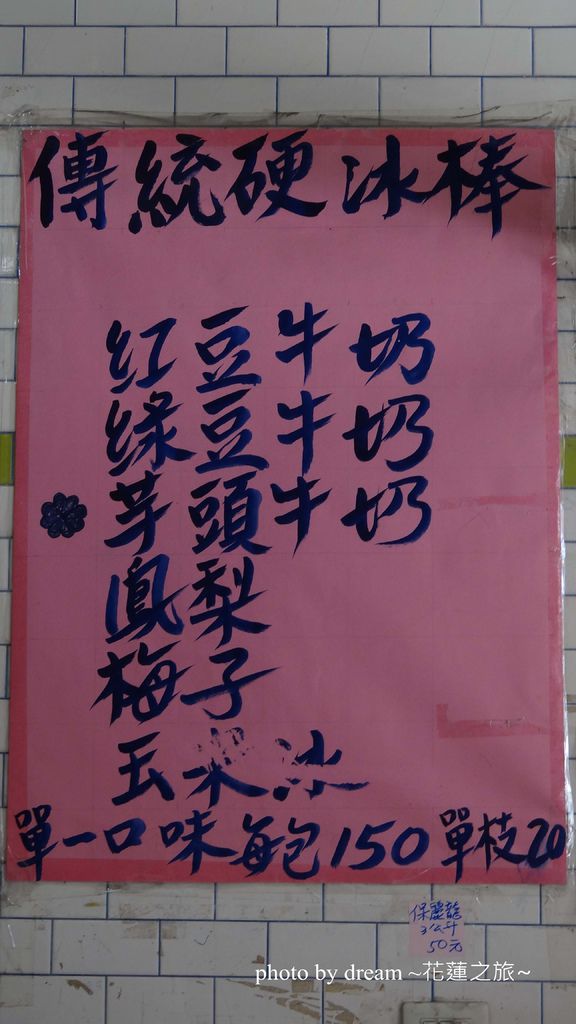 傳統硬冰棒
紅豆牛奶
綠豆牛奶
芋頭牛奶
鳳梨
梅子
玉米冰
單一口味每包150單枝20
保麗龍
3公斤
50元
photo by dream ~花蓮之旅~